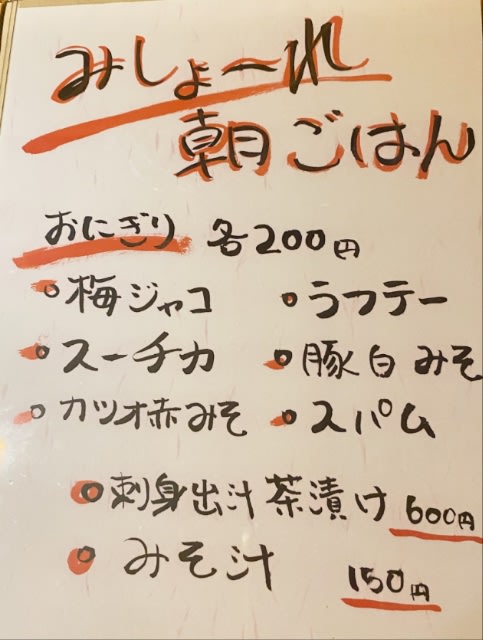 みしょ〜れ
朝ごはん
おにぎり 各200円
梅ジャコ ラフテー
スーチカ 豚白みそ
カツオ赤みそ スパム
刺身出汁茶漬け 600円
みそ汁 150円